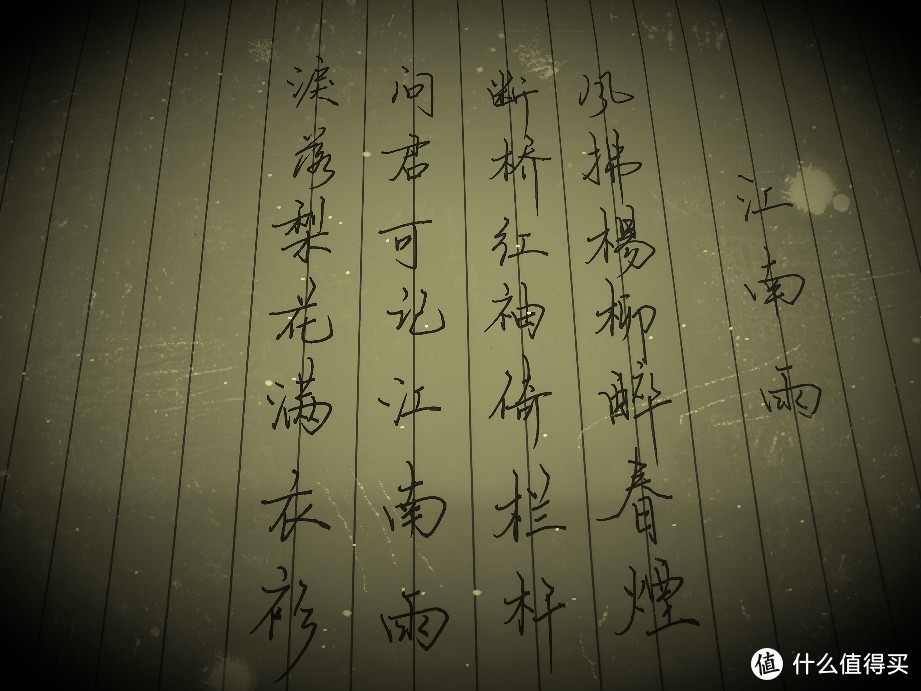 江南雨
风拂楊柳醉春煙
断桥红袖倚栏杆
问君可记江南雨
淚落梨花满衣衫
值 什么值得买